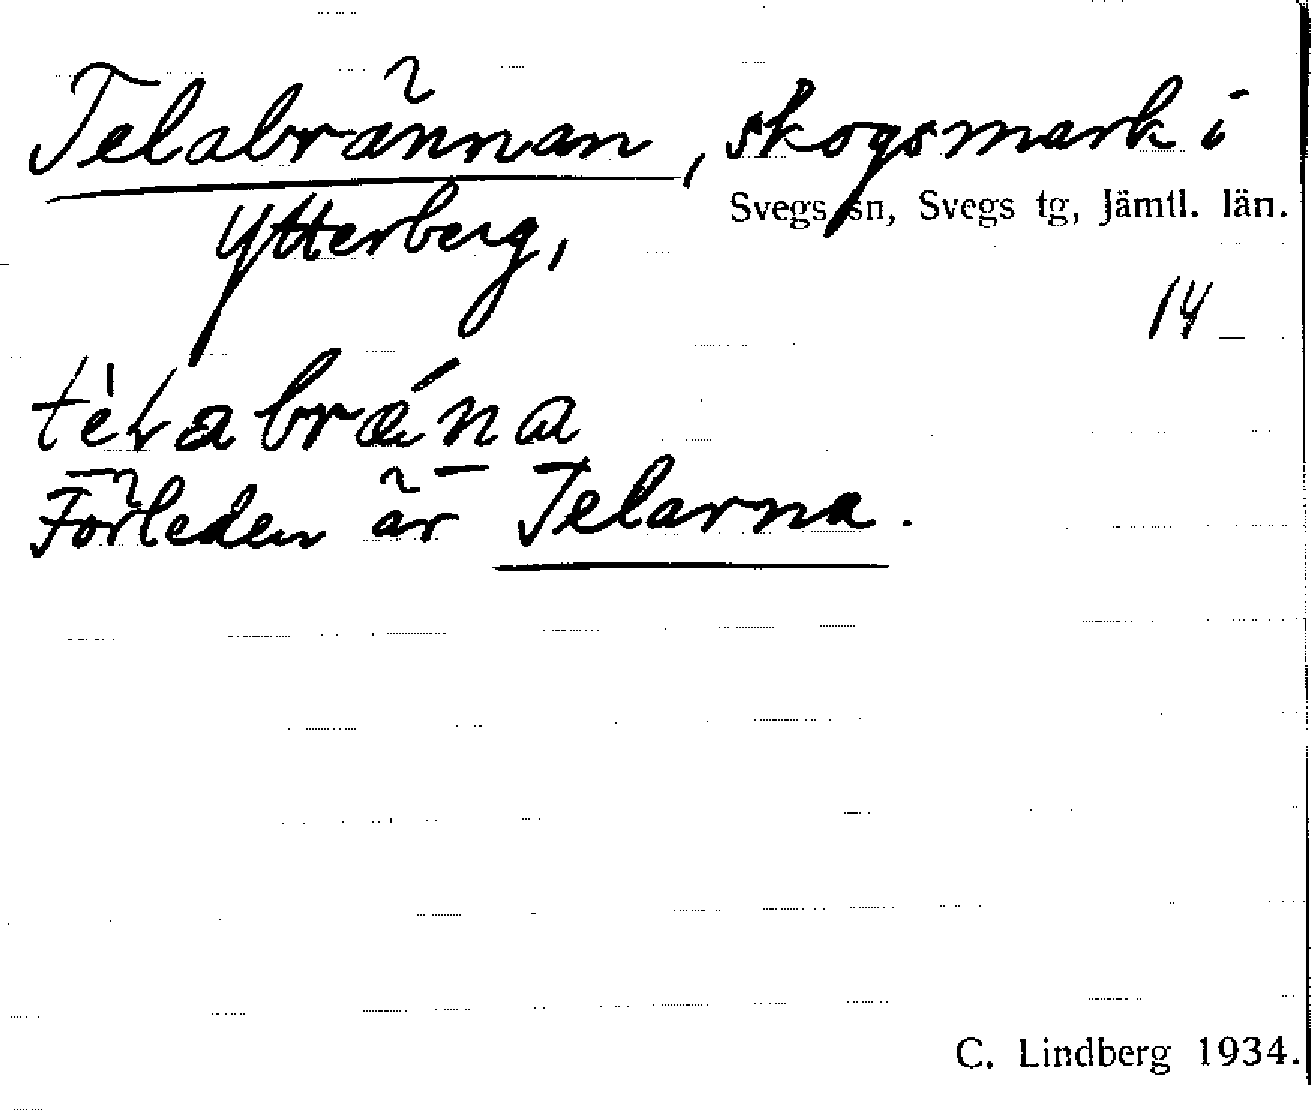 Telabrännan, skogsmark i
Svegs sn, Svegs tg, Jämtl. län.
Ytterberg,
14 –
Förleden är Telarna.
C. Lindberg 1934.